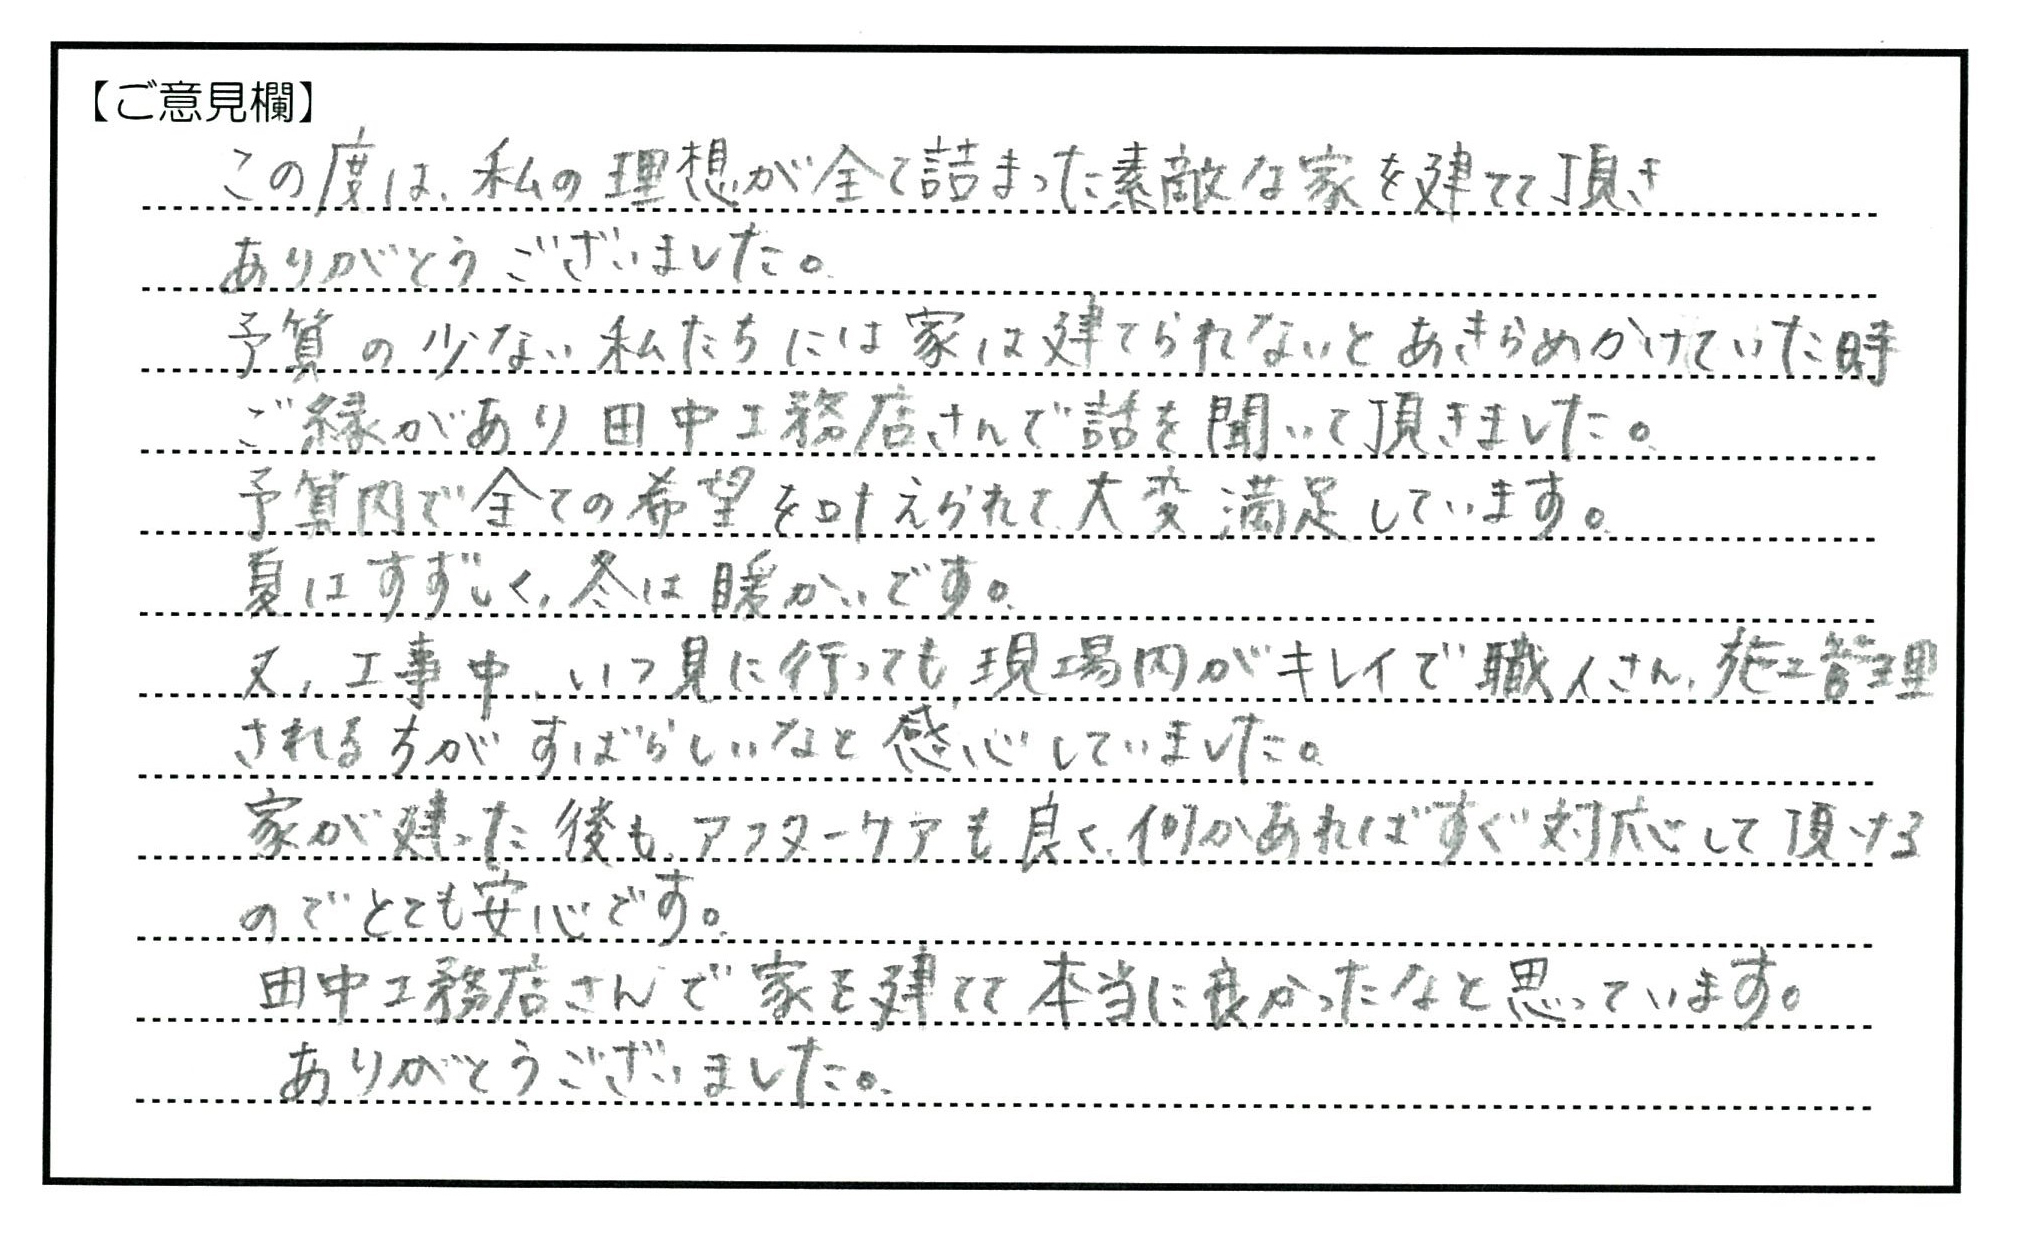 【ご意見欄】
この度は、私の理想が全て詰まった素敵な家を建てて頂き
ありがとうございました。
予算の少ない私たちには家は建てられないとあきらめかけていた時
ご縁があり田中工務店さんで話を聞いて頂きました。
予算内で全ての希望を叶えられて、大変満足しています。
夏はすずしく、冬は暖かいです。
又、工事中、いつ見に行っても、現場内がキレイで職人さん、施工管理
される方がすばらしいなと感心していました。
家が建った後も、アフターケアも良く、何かあればすぐ対応して頂ける
のでとても安心です。
田中工務店さんで家を建てて本当に良かったなと思っています。
ありがとうございました。